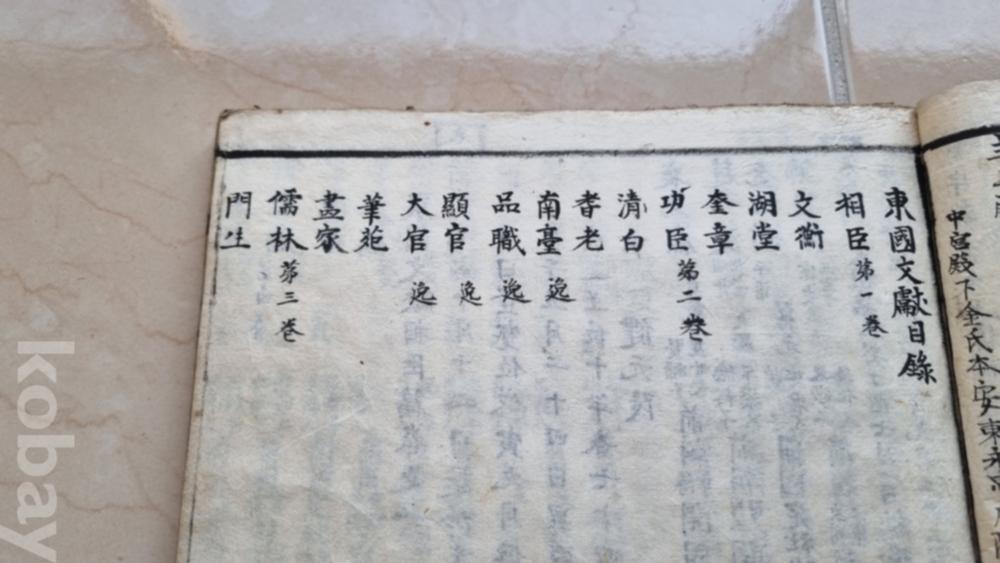 中宮殿下金氏本安東永
東國文獻目錄
相臣 第一卷
文衡
湖堂
奎章
功臣 第二卷
清白
耆老
南臺 逸
品職 逸
顯官 逸
大官 逸
筆苑
畫家
儒林 第三卷
門生
kobay